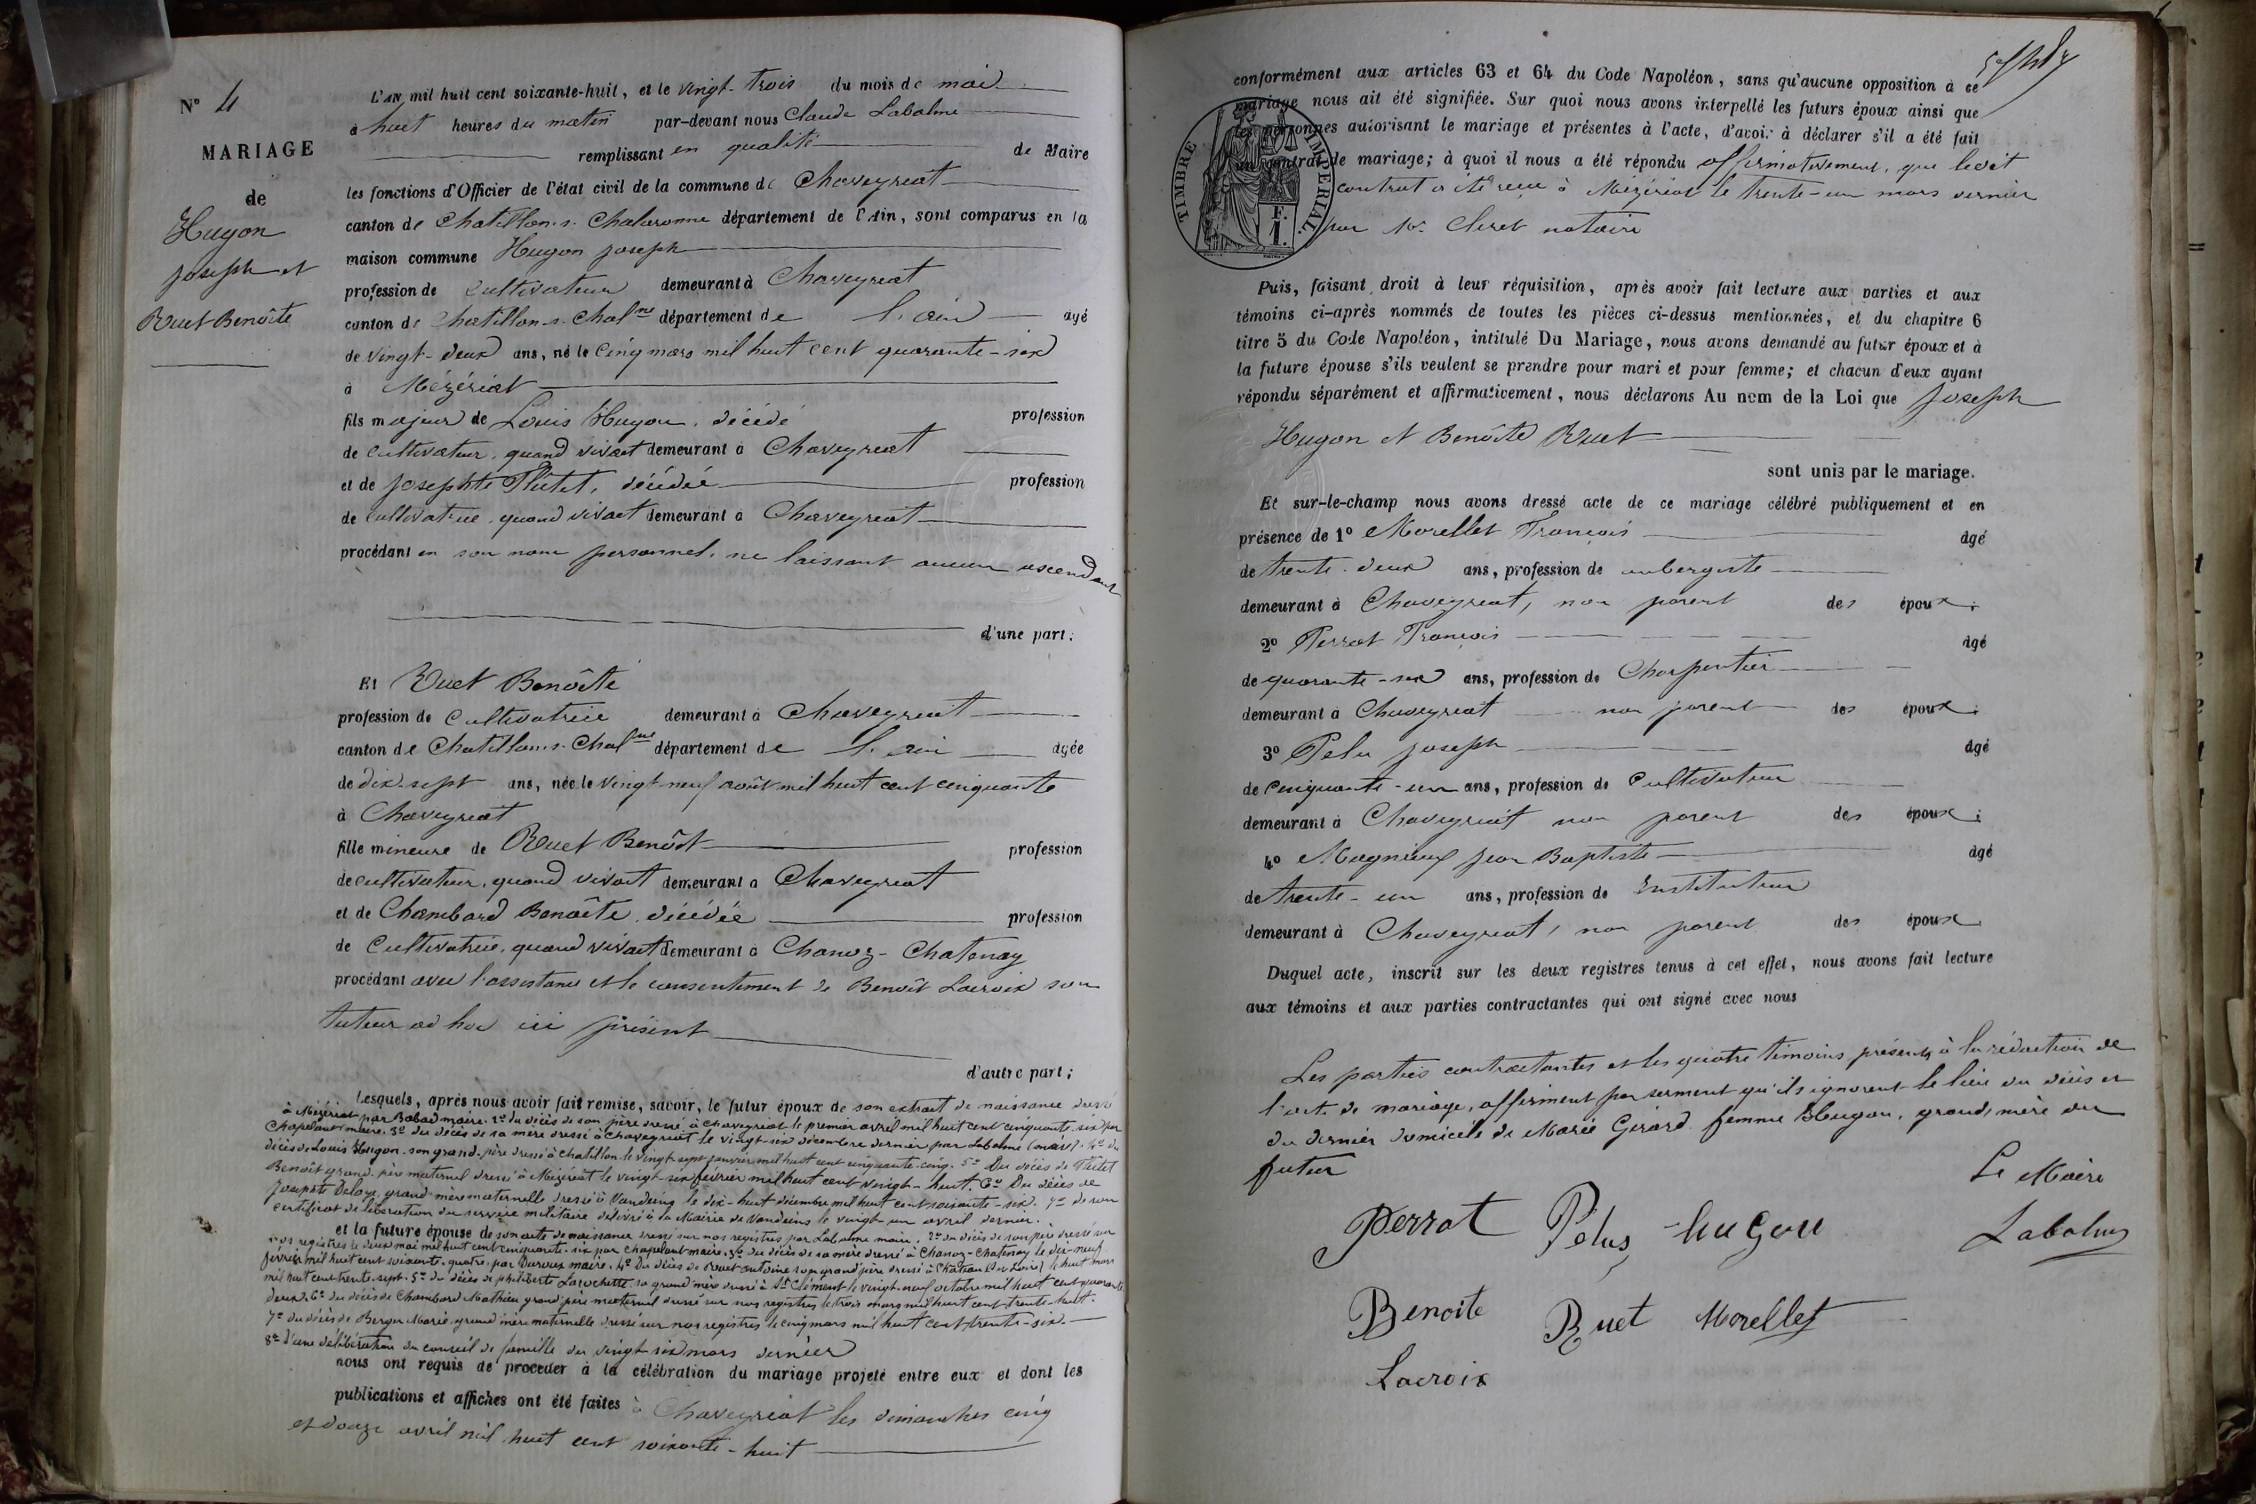 N° 4
MARIAGE
de
Hugon
Joseph et
Ruet Benoîte
L'AN mil huit cent soixante-huit, et le vingt-trois du mois de mai
à huit heures du matin par-devant nous Claude Labalme
remplissant en qualité de Maire
les fonctions d'Officier de l'état civil de la commune de Chaveyriat
canton de Chatillon-s-Chalaronne département de l'Ain, sont comparus en la
maison commune Hugon Joseph
profession de cultivateur demeurant à Chaveyriat
canton de Chatillon-s-Chalne département de l'ain agé
de vingt-deux ans, né le cinq mars mil huit cent quarante-six
à Mézériat
fils majeur de Louis Hugon, décédé profession
de cultivateur, quand vivait demeurant à Chaveyriat
et de Josephte Plutet, décédée profession
de cultivatrice, quand vivait demeurant à Chaveyriat
procédant en son nom personnel, ne laissant aucun ascendant
d'une part;
Et Ruet Benoîte
profession de cultivatrice demeurant à Chaveyriat
canton de Chatillon-s-Chalne département de l'ain agée
de dix-sept ans, née le vingt-neuf août mil huit cent cinquante
à Chaveyriat
fille mineure de Ruet Benoît profession
de cultivateur, quand vivait demeurant à Chaveyriat
et de Chambard Benoîte, décédée profession
de cultivatrice, quand vivait demeurant à Chanoz-Chatenay
procédant avec l'assistance et le consentement de Benoît Lacroix son
tuteur ad hoc ici présent
d'autre part;
Lesquels, après nous avoir fait remise, savoir, le futur époux de son extrait de naissance dressé
à Mézériat par Babad maire. 2° du décès de son père dressé à Chaveyriat le premier avril mil huit cent cinquante-six par
Chapelant maire. 3° du décès de sa mère dressé à Chaveyriat le vingt-six décembre dernier par Labalme (maire). 4° du
décès de Louis Hugon son grand-père dressé à Chatillon le vingt-sept janvier mil huit cent cinquante-cinq. 5° Du décès de Plutet
Benoît grand-père maternel dressé à Mézériat le vingt-six février mil huit cent vingt-huit. 6° Du décès de
Josephte Deloye, grand-mère maternelle dressé à Vandeins le dix-huit décembre mil huit cent soixante-six. 7° de son
certificat de libération du service militaire délivré à la Mairie de Vandeins le vingt-un avril dernier.
et la future épouse de son acte de naissance dressé sur nos registres par Labalme maire. 2° du décès de son père dressé sur
nos registres le deux mai mil huit cent cinquante-six par Chapelant maire. 3° du décès de sa mère dressé à Chanoz-Chatenay le dix-neuf
février mil huit cent soixante-quatre, par Duroux maire. 4° Du décès de Ruet Antoine son grand-père dressé à le huit mars
mil huit cent trente-sept. 5° du décès de philiberte Larochette sa grand'mère dressé à St Clément le vingt-neuf octobre mil huit cent quarante
deux. 6° du décès de Chambard Mathieu grand-père maternel dressé sur nos registres le trois mars mil huit cent trente-huit.
7° du décès de Berger Marie grand'mère maternelle dressé sur nos registres le cinq mars mil huit cent trente-six.
8° d'une délibération du conseil de famille du vingt-six mars dernier
nous ont requis de procéder à la célébration du mariage projeté entre eux et dont les
publications et affiches ont été faites à Chaveyriat les dimanches cinq
et douze avril mil huit cent soixante-huit
conformément aux articles 63 et 64 du Code Napoléon, sans qu'aucune opposition à ce
mariage nous ait été signifiée. Sur quoi nous avons interpellé les futurs époux ainsi que
les personnes autorisant le mariage et présentes à l'acte, d'avoir à déclarer s'il a été fait
un contrat de mariage; à quoi il nous a été répondu affirmativement, que ledit
contrat a été reçu à Mézériat le trente-un mars dernier
par Me Cleret notaire
TIMBRE IMPERIAL
F.
1.
Puis, faisant droit à leur réquisition, après avoir fait lecture aux parties et aux
témoins ci-après nommés de toutes les pièces ci-dessus mentionnées, et du chapitre 6
titre 5 du Code Napoléon, intitulé Du Mariage, nous avons demandé au futur époux et à
la future épouse s'ils veulent se prendre pour mari et pour femme; et chacun d'eux ayant
répondu séparément et affirmativement, nous déclarons Au nom de la Loi que Joseph
Hugon et Benoîte Ruet
sont unis par le mariage.
Et sur-le-champ nous avons dressé acte de ce mariage célébré publiquement et en
présence de 1° Morellet François agé
de trente-deux ans, profession de aubergiste
demeurant à Chaveyriat, non parent des époux;
2° Perrat François agé
de quarante-six ans, profession de Charpentier
demeurant à Chaveyriat non parent des époux;
3° Pelus Joseph agé
de cinquante-un ans, profession de cultivateur
demeurant à Chaveyriat non parent des époux;
4° Magnieux Jean Baptiste agé
de trente-un ans, profession de Instituteur
demeurant à Chaveyriat, non parent des époux
Duquel acte, inscrit sur les deux registres tenus à cet effet, nous avons fait lecture
aux témoins et aux parties contractantes qui ont signé avec nous
Les parties contractantes et les quatre témoins présents à la rédaction de
l'acte de mariage, affirment par serment qu'ils ignorent le lieu du décès et
du dernier domicile de Marie Girard femme Hugon, grand'mère du
futur
Le Maire
Perrat Pelus hugon Labalme
Benoite Ruet Morellet
Lacroix